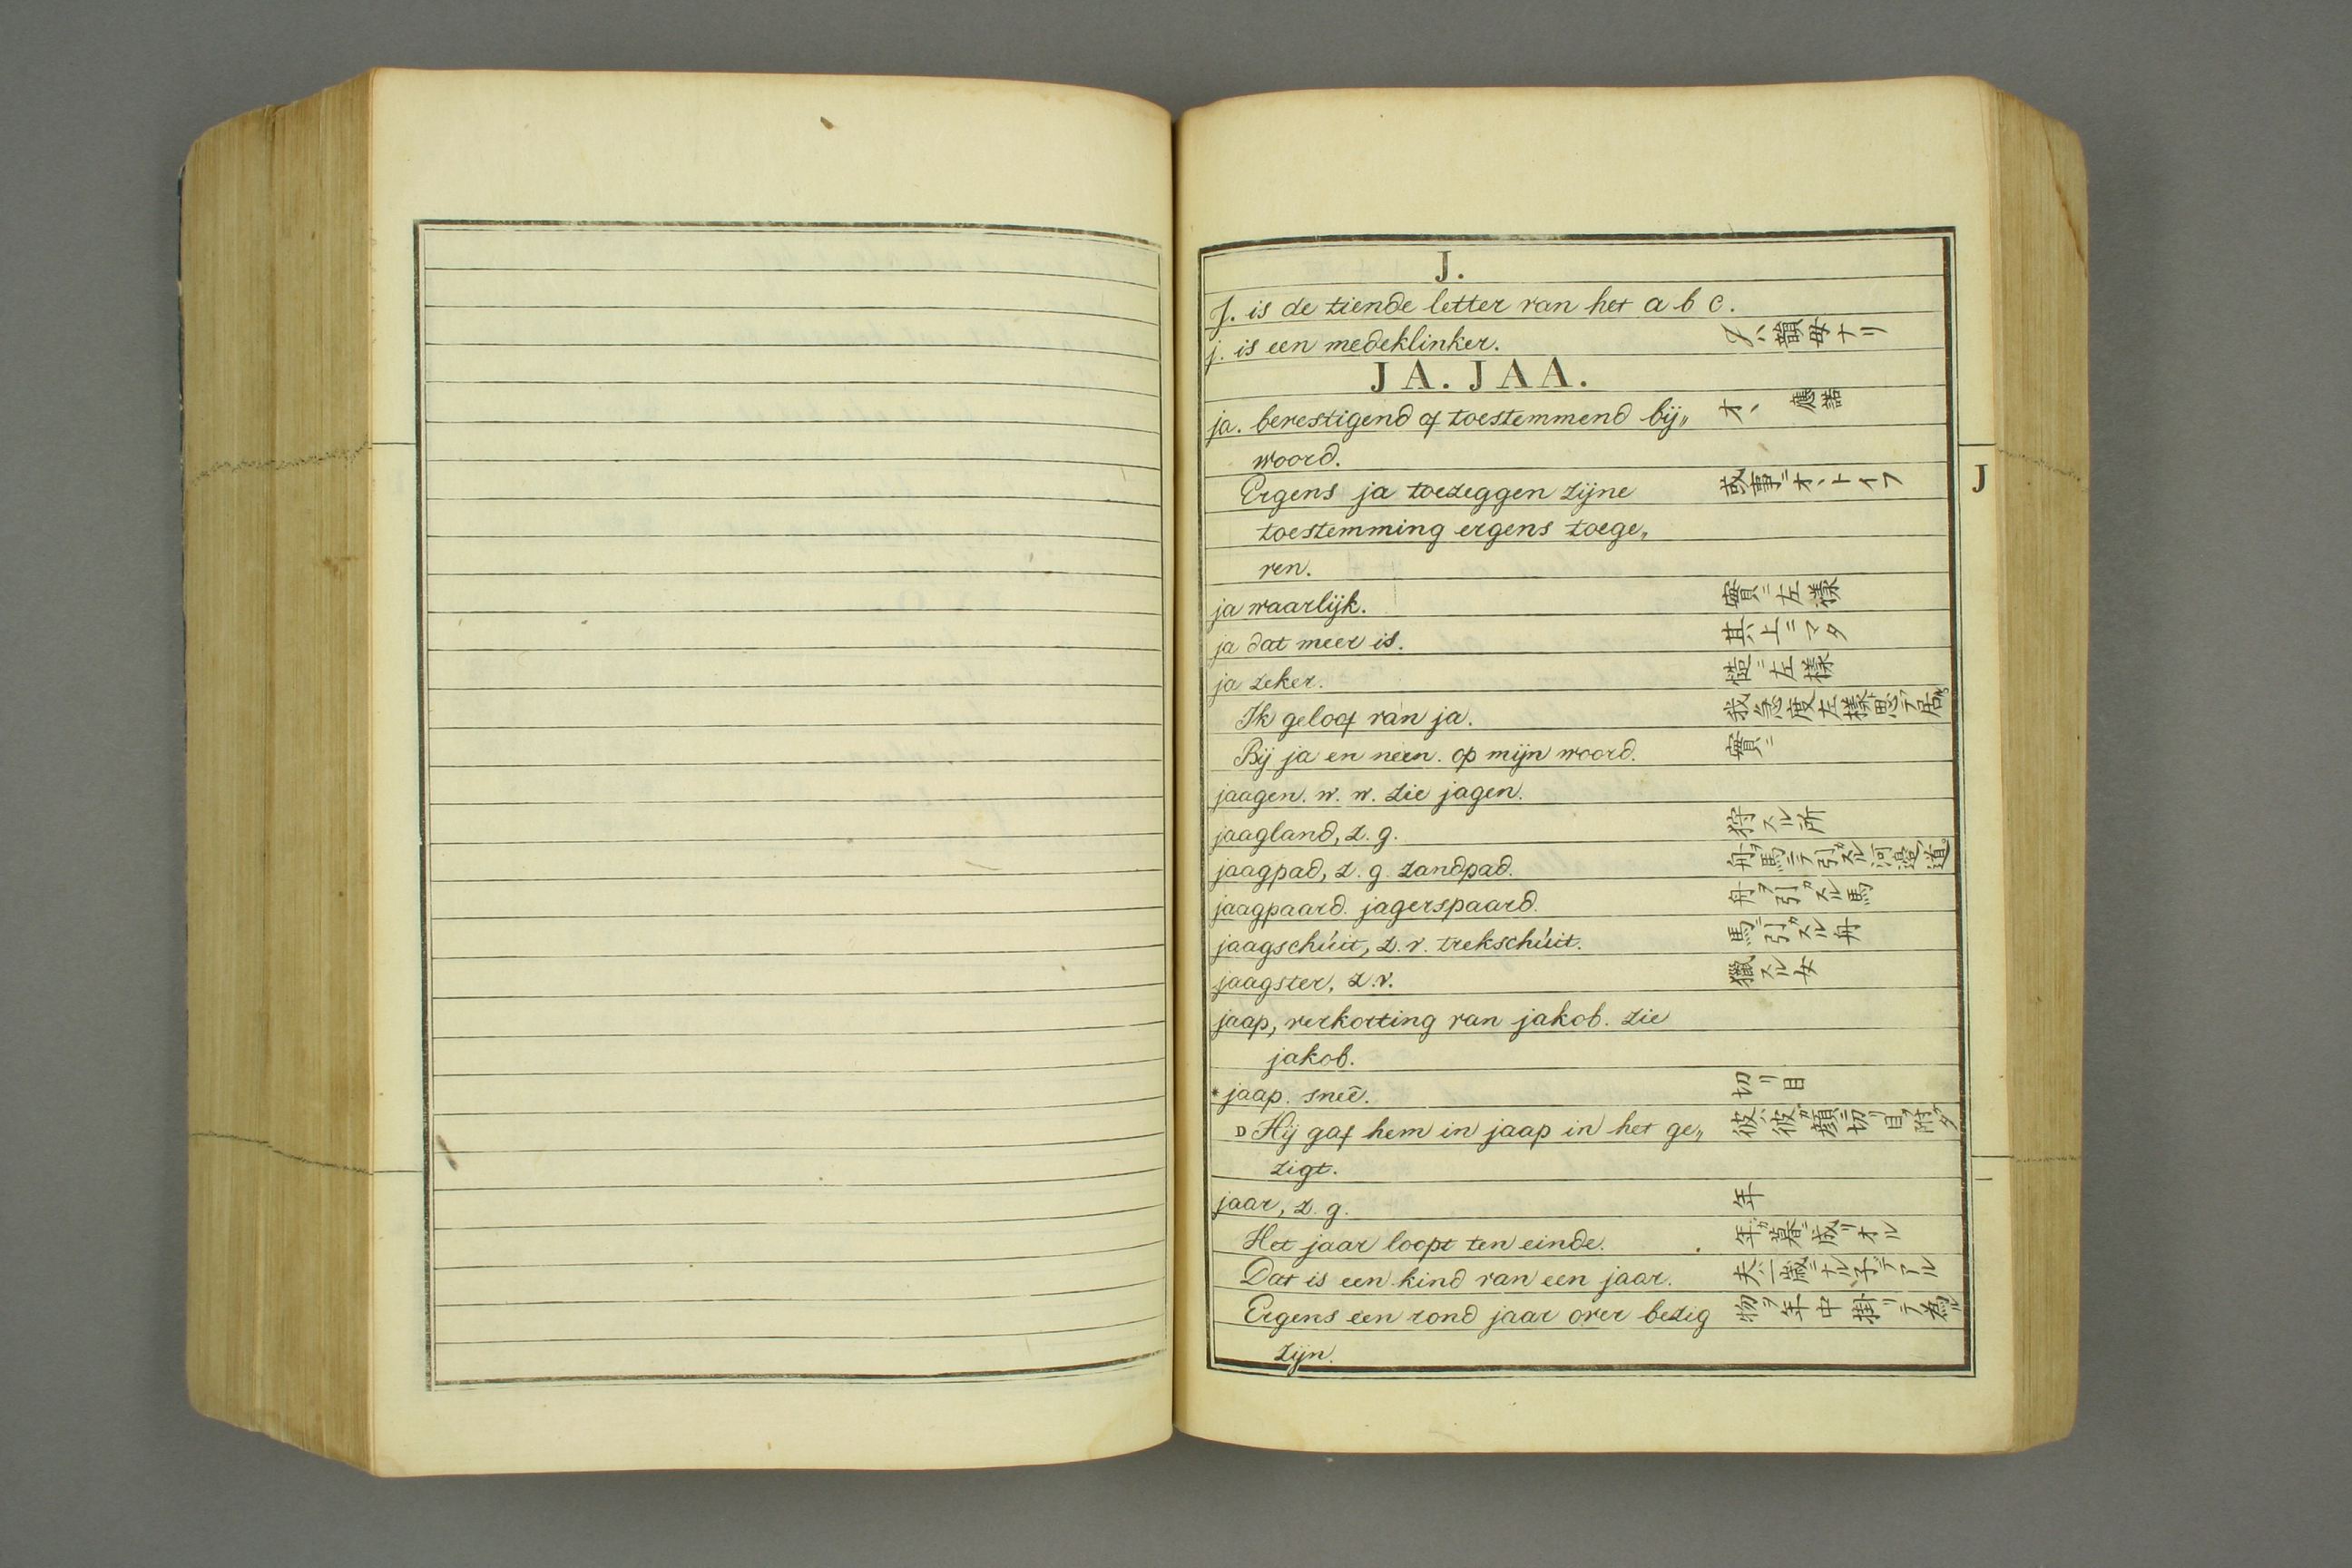 J.
J. is de tiende letter van het a b c.
j. is een medeklinker. J ハ韻母ナリ
JA. JAA.
ja. bevestigend of toestemmend bij„ オヽ 應語
woord.
Ergens ja toezeggen zijne 或事ニオヽトイフ
toestemming ergens toege„
ven.
ja waarlijk. 實ニ左様
ja dat meer is. 其上ニマタ
ja zeker. 慥ニ左様
Ik geloof van ja. 我急度左様思テ居ル
Bij ja en neen. op mijn woord. 實ニ
jaagen. w. w. zie jagen.
jaagland, z. g. 狩スル所
jaagpad, z. g. zandpad. 舟ヲ馬ニテ引カスル河邉ノ道
jaagpaard. jagerspaard. 舟ヲ引カスル馬
jaagschúit, z. v. trekschúit. 馬ニ引カスル舟
jaagster, z. v. 獵スル女
jaap, verkorting van jakob. zie
jakob.
* jaap. sneē. 切リ目
D Hij gaf hem in jaap in het ge„ 彼ハ彼ガ顔ニ切リ目ヲ附タ
zigt.
jaar, z. g. 年
Het jaar loopt ten einde. 年ガ暮ニ成リオル
Dat is een kind van een jaar. 夫ハ一歳ニナル子デアル
Ergens een rond jaar over bezig 物ヲ年中掛リテ為ル
zijn.
J